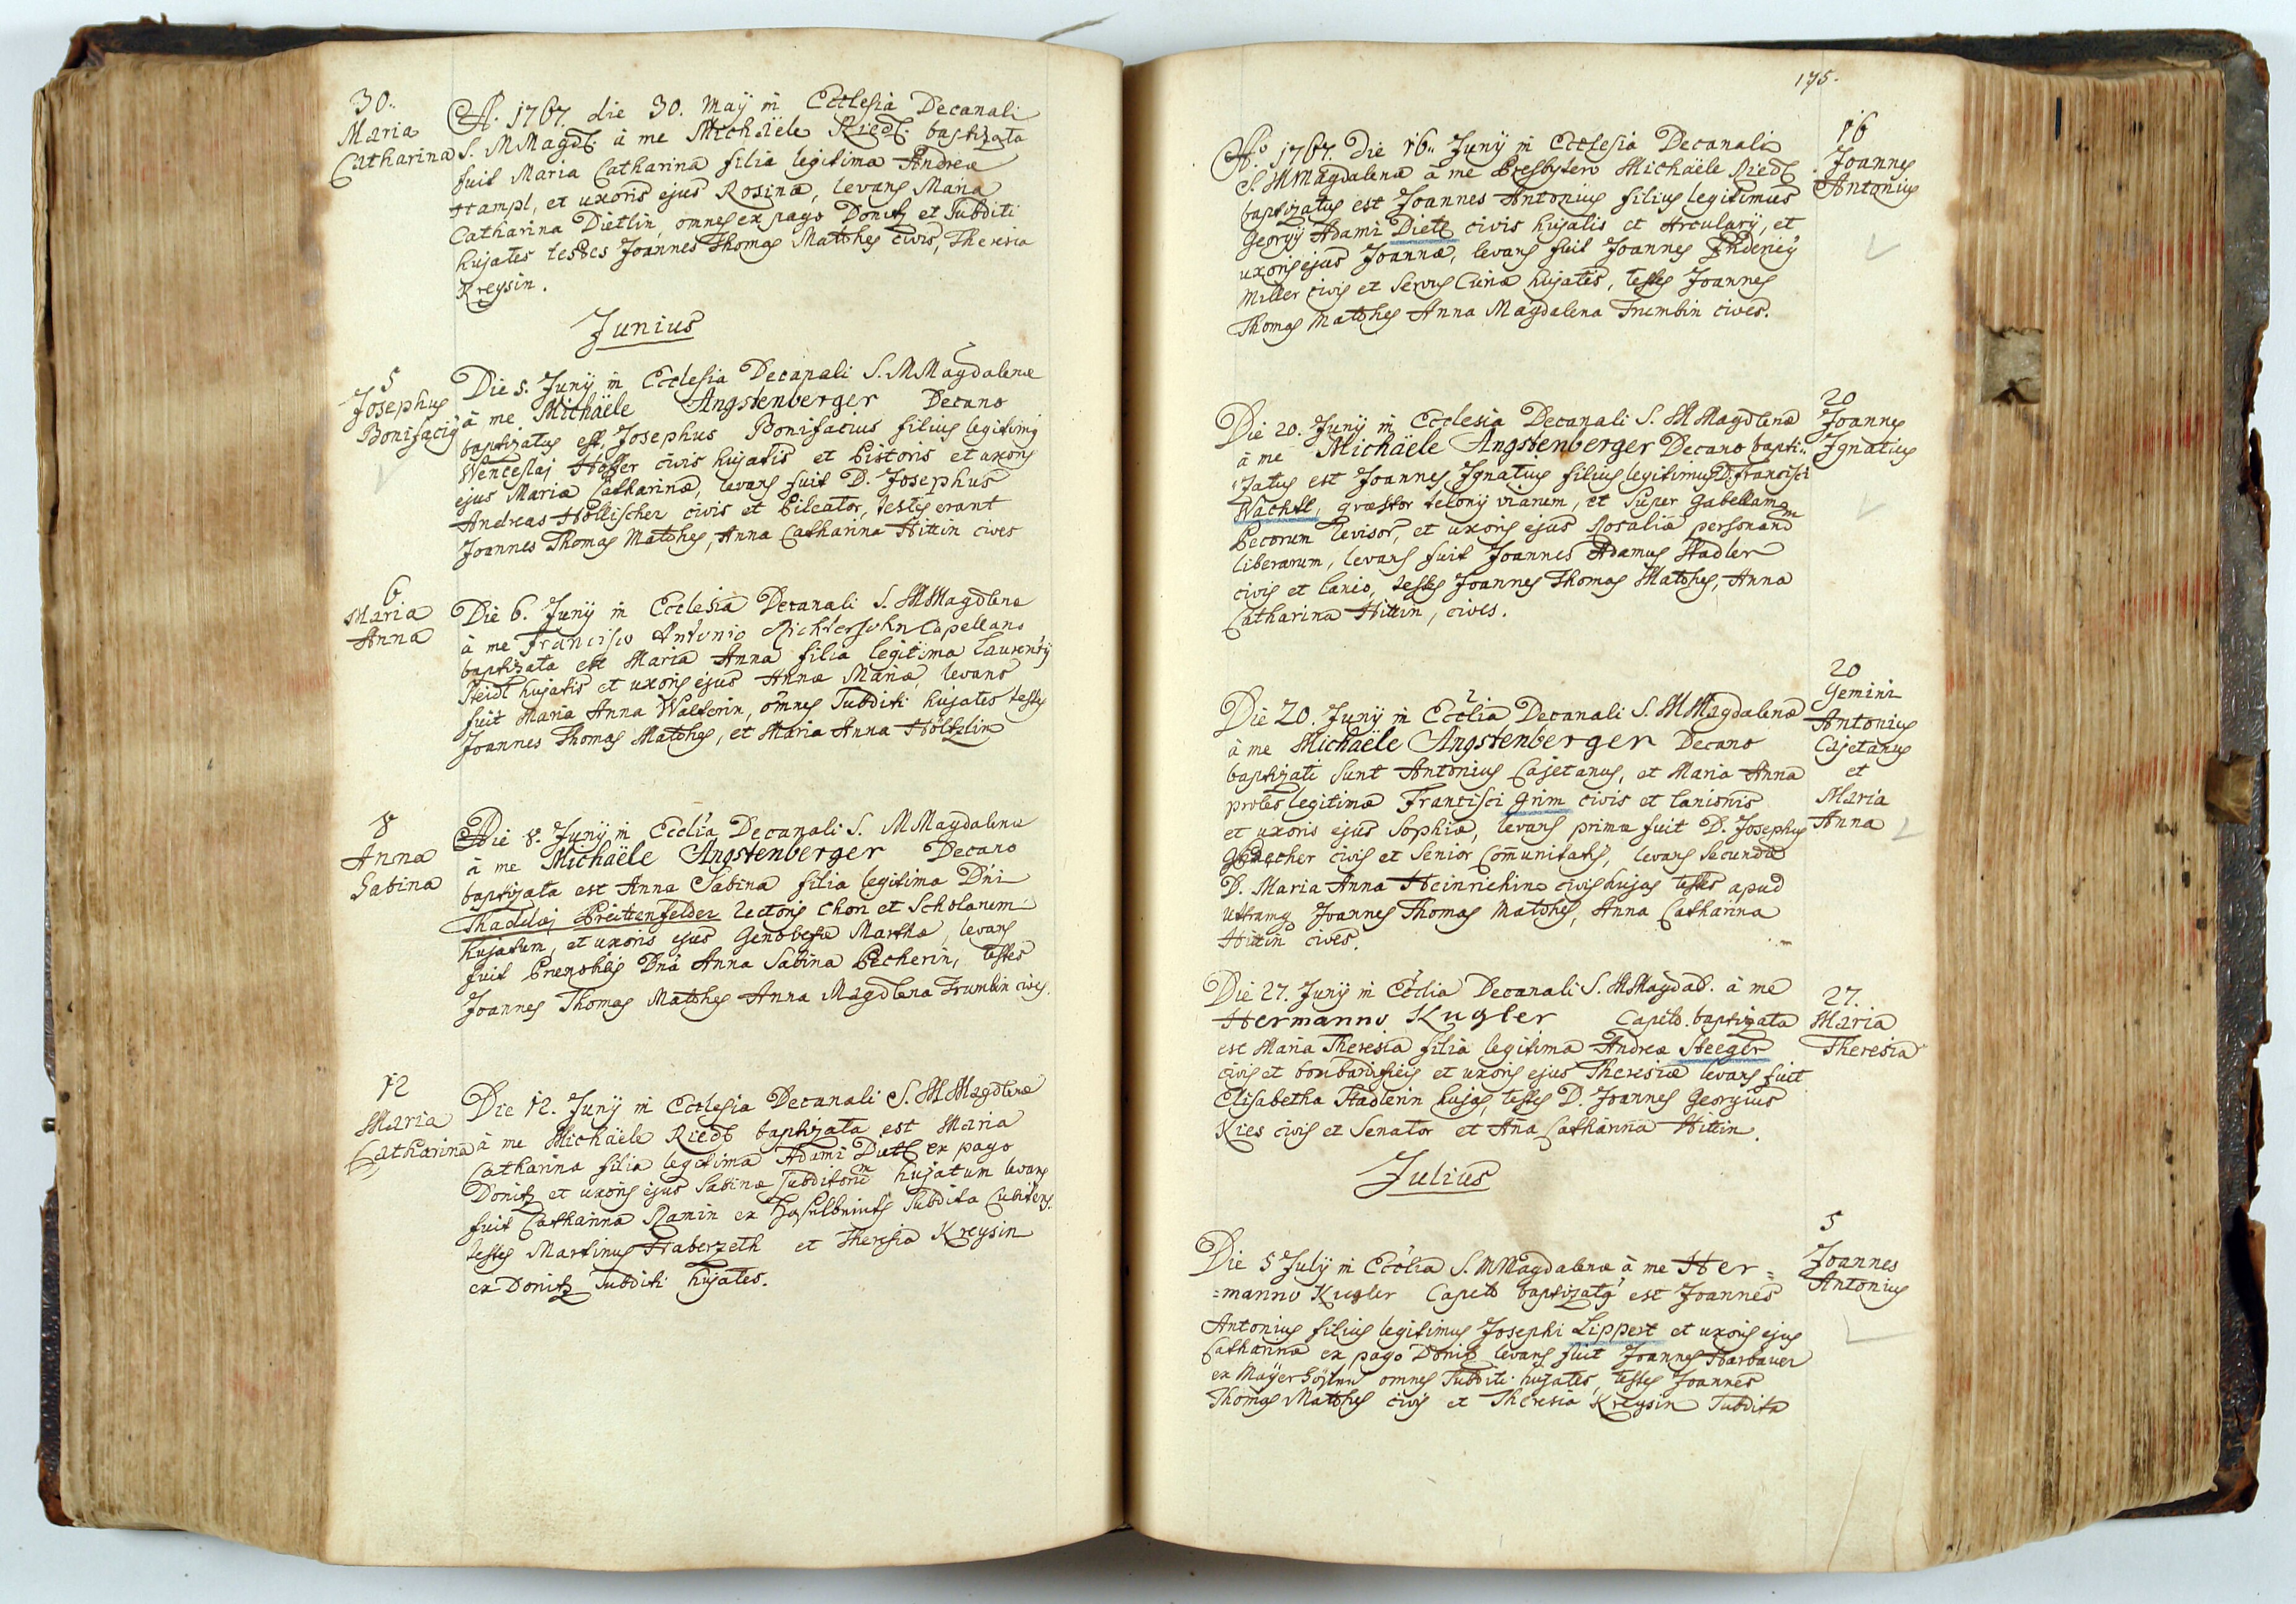 30..
Maria
Catharina
A. 1767. die 30. Maÿ in Ecclesia Decanali
S. M Magdl. à me Michaële Riedl. baptizata
fuit Maria Catharina filia legitima Andreæ
Hampl, et uxoris ejus Rosinæ, levans Maria
Catharina Dietlin, omnes ex pago Donitz et Subditi
hujates testes Joannes Thomas Matthes civis, Theresia
Kreysin.
Junius
5
Josephus
Bonifacius
Die 5. Junÿ in Ecclesia Decanali S. M Magdalenæ
à me Michaële Angstenberger Decano
baptizatus est Josephus Bonifacius filius legitimus
Wenceslai Hoffer civis hujatis et Pistoris et uxoris
ejus Maria Catharinæ, levans fuit D. Josephus
Andreas Höllischer civis et Pileator, testes erant
Joannes Thomas Matthes, Anna Catharina Hittin cives
6
Maria
Anna
Die 6. Junÿ in Ecclesia Decanali S. M Magdlenæ
à me Francisco Antonio Richtersohn Capellano
baptizata est Maria Anna filia legitima Laurentÿ
Steidl hujatis et uxoris ejus Annæ Mariæ, levans
fuit Maria Anna Walterin, omnes Subditi hujates testes
Joannes Thomas Matthes, et Maria Anna Höltzlin
8
Anna
Sabina
Die 8. Junÿ in Ecclia Decanali S. M Magdalenæ
à me Michaële Angstenberger Decano
baptizata est Anna Sabina filia legitima Dni
Thadæi Breittenfelder Rectoris Chori et Scholarum
hujatum, et uxoris ejus Genovefæ Marthæ, levans
fuit Prænobilis Dna Anna Sabina Pecherin, testes
Joannes Thomas Matthes Anna Magdlena Trumbin cives.
12
Maria
Catharina
Die 12. Junÿ in Ecclesia Decanali S. M Magdlenæ
à me Michaële Riedl baptizata est Maria
Catharina filia legitima Adami Dietl ex pago
Donitz et uxoris ejus Sabinæ Subditorum hujatum levans
fuit Catharina Ramin ex Subdita Cubitens.
testes Martinus Haberzeth et Theresia Kreysin
ex Donitz Subditi hujates.
175.
Ao 1767. Die 16.. Junÿ in Ecclesia Decanali
S. M Magdalenæ à me Presbytero Michaële Riedl
baptizatus est Joannes Antonius filius legitimus
Georgÿ Adami Dietl civis hujatis et Arcularÿ, et
uxoris ejus Joannæ, levans fuit Joannes
Miller civis et Servus Curiæ hujatis, testes Joannes
Thomas Matthes Anna Magdalena Trumbin cives.
16
Joannes
Antonius
Die 20. Junÿ in Ecclesia Decanali S. M Magdlenæ
à me Michaële Angstenberger Decano bapti=
=zatus est Joannes Ignatius filius legitimus D. Francisci
Wachtl, quæstor telonÿ viarum, et Super Gabellam
Pecorum Revisor, et uxoris ejus Rosaliæ personarum
liberarum, levans fuit Joannes Adamus Stadler
civis et lanio, testes Joannes Thomas Matthes, Anna
Catharina Hittin, cives.
20
Joannes
Ignatius
Die 20. Junÿ in Ecclia Decanali S. M Magdalenæ
à me Michaële Angstenberger Decano
baptizati sunt Antonius Cajetanus, et Maria Anna
proles legitimæ Francisci Grim civis et lanionis
et uxoris ejus Sophiæ, levans primæ fuit D. Josephus
civis et Senior Communitatis, levans secundæ
D. Maria Anna Heinrichin civis hujas testes apud
utramq Joannes Thomas Matthes, Anna Catharina
Hittin cives.
20
Gemini
Antonius
Cajetanus
et
Maria
Anna
Die 27. Junÿ in Ecclia Decanali S. M Magdal. à me
Hermanno Kugler Capelo. baptizata
est Maria Theresia filia legitima Andreæ Steeger
civis et bombardificis et uxoris ejus Theresiæ levans fuit
Elisabetha Stadlerin hujas, testes D. Joannes Georgius
Kies civis et Senator et Ana Catharina Hittin.
27.
Maria
Theresia
Julius
Die 5 Julÿ in Ecclia S. M Magdalenæ à me Her=
=manno Kugler Capelo baptizatus est Joannes
Antonius filius legitimus Josephi Lippert et uxoris ejus
Catharinæ ex pago Donitz levans fuit Joannes Harbauer
ex omnes Subditi hujates, testes Joannes
Thomas Matthes civis et Theresia Kreysin Subdita
5
Joannes
Antonius